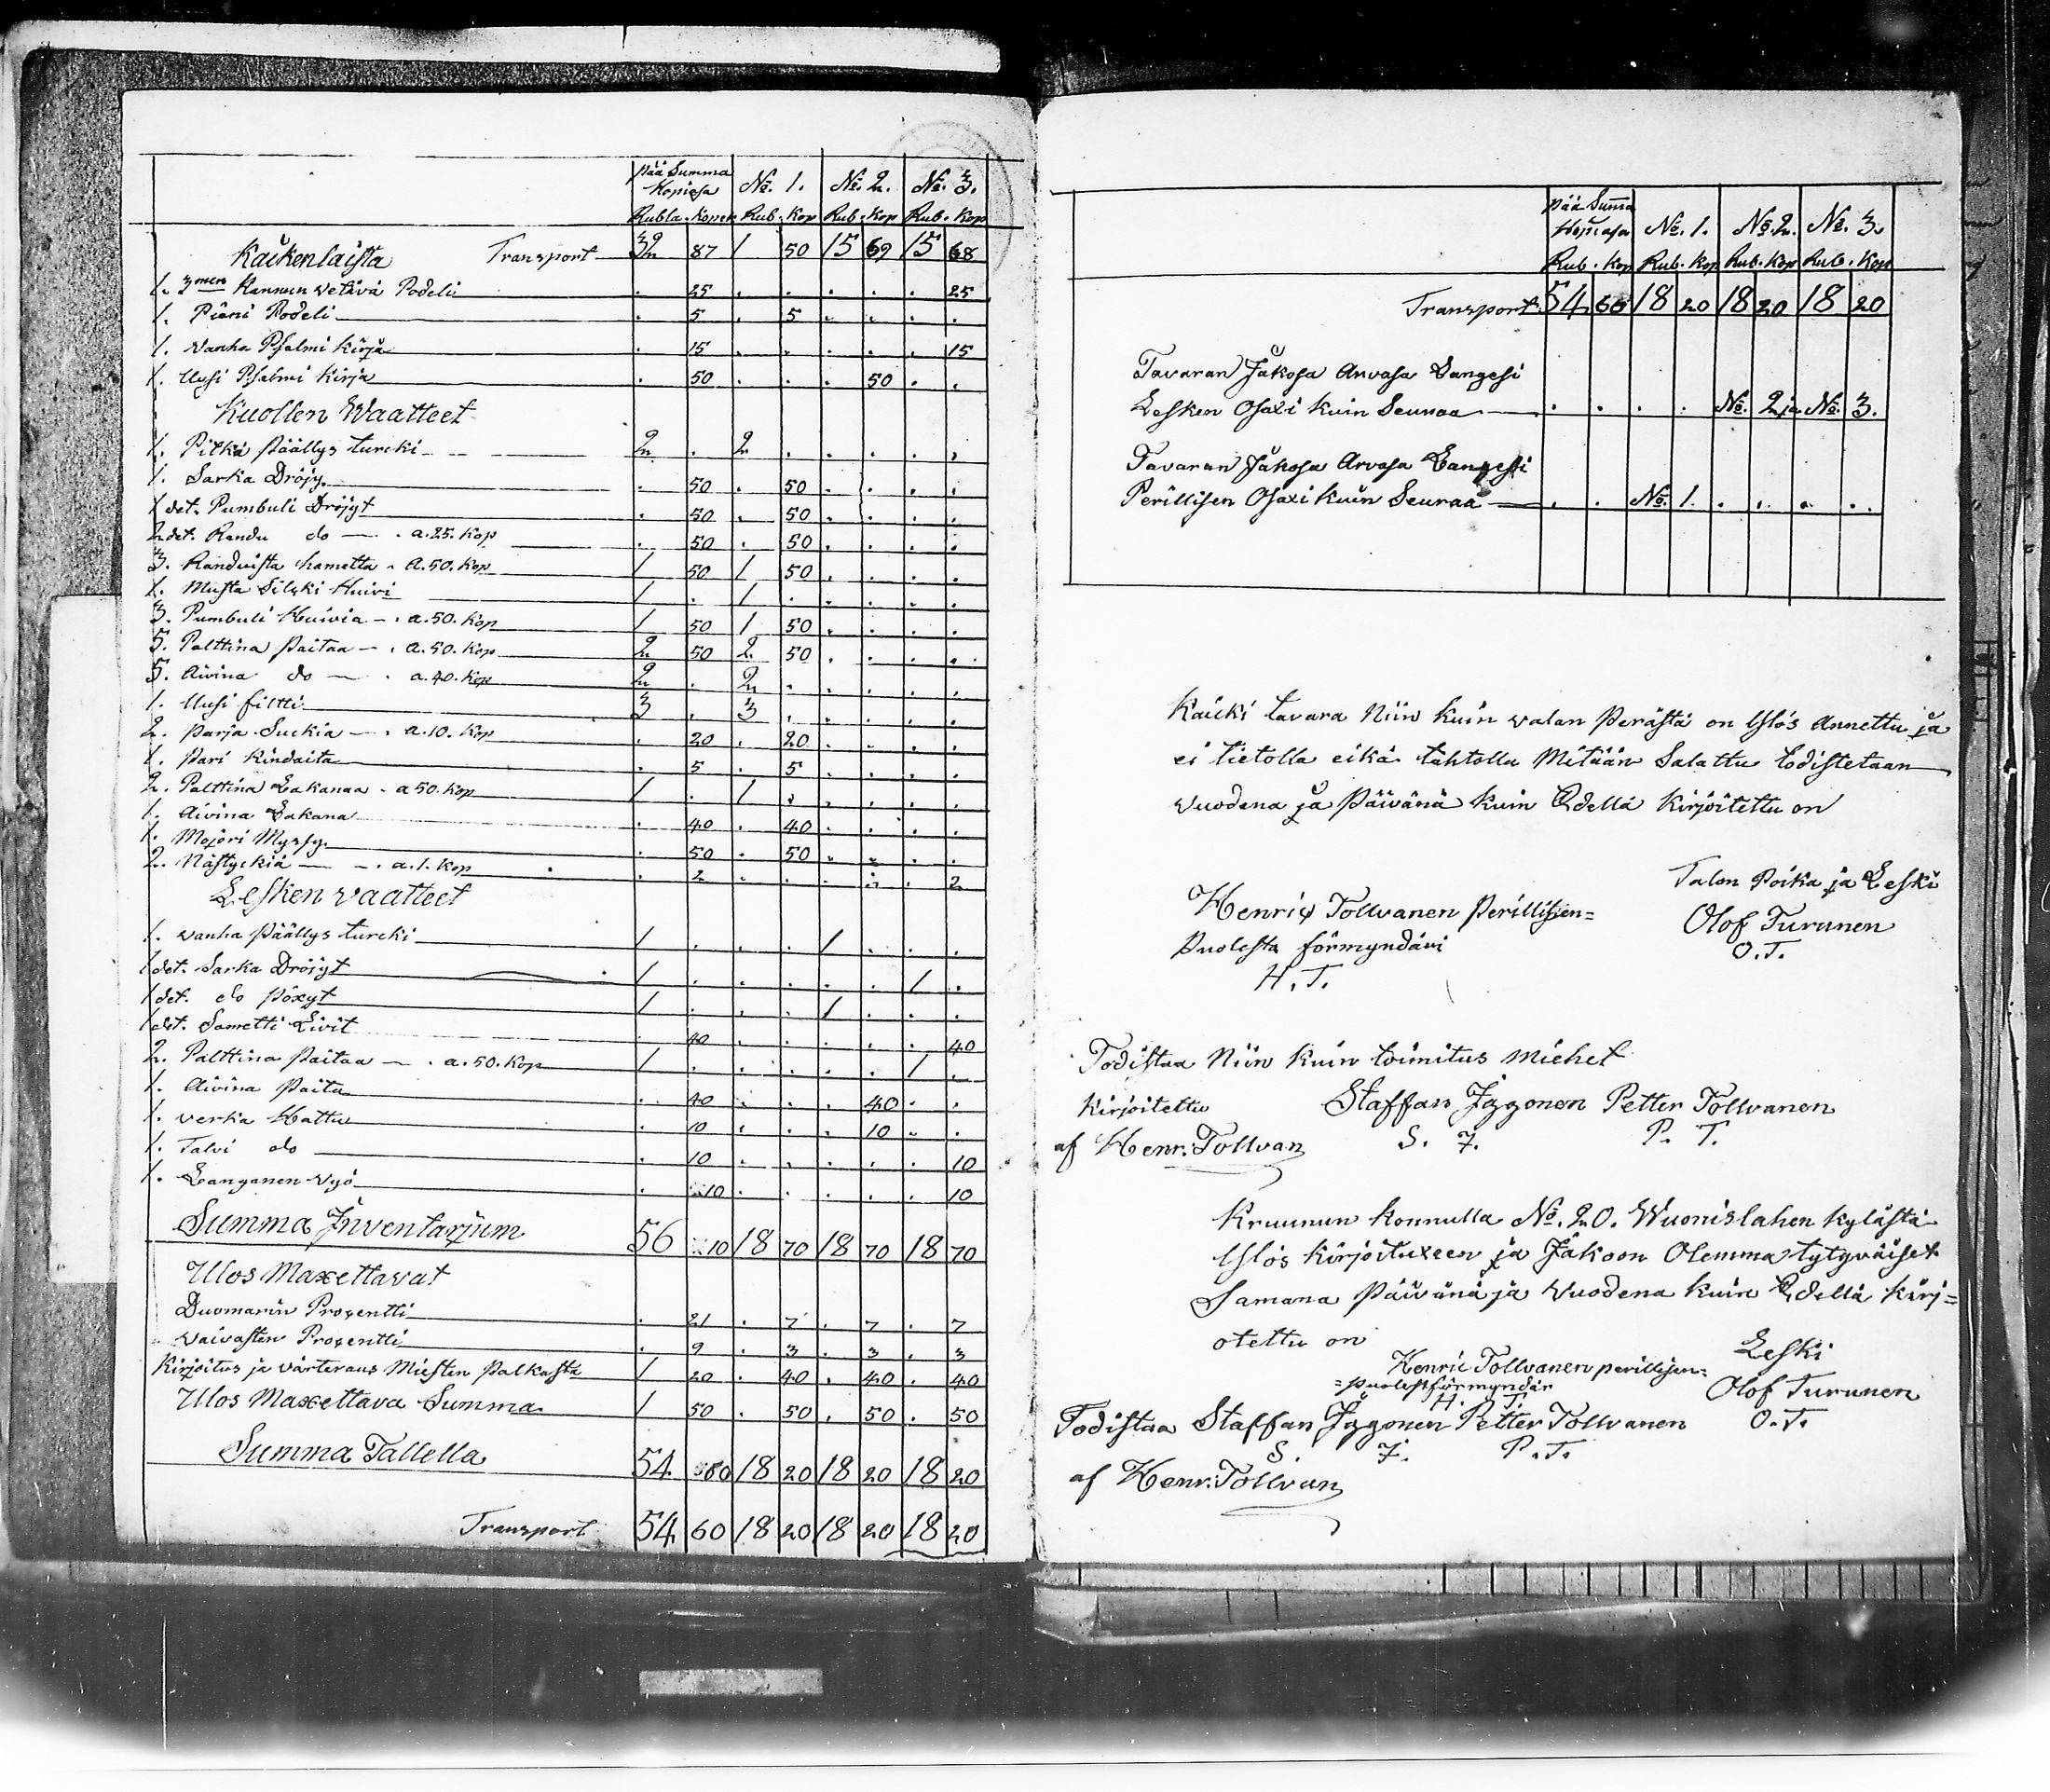 Pää Summa
Kopiosa No. 1. No. 2. No. 3.
Rubla. Kopek Rub. Kop Rub. Kop Rub. Kop
Kaikenlaista Transport 32 87 1 50 15 69 15 68
1. 3men Kannun Wetävä Podeli . 25 . . . . . 25
1. Pieni Podeli . 5 . 5 . . . .
1. Wanha Psalmi Kirja . 15 . . . . . 15
1. Uusi Psalmi Kirja . 50 . . . 50 . .
Kuollen Waatteet
1. Pitkä Päällys turcki 2 . 2 . . . . .
1. Sarka Dröjy . 50 . 50 . . . .
1 det. Pumbuli Dröjyt . 50 . 50 . . . .
2 det. Randu do — . a. 25. Kop . 50 . 50 . . . .
3. Randuista hametta - a. 50. Kop 1 50 1 50 . . . .
1. Musta Silcki Huivi 1 . 1 . . . . .
3. Pumbuli Huivia - . a. 50. Kop 1 50 1 50 . . . .
5. Palttina Paitaa — . a. 50. Kop 2 50 2 50 . . . .
5. Aivina do — . a. 40. Kop 2 . 2 . . . . .
1. Uusi filtti 3 . 3 . . . . .
2. Parja Suckia — . a. 10. Kop . 20 . 20 . . . .
1. Pari Kindaita . 5 . 5 . . . .
2. Palttina Lakanaa - a 50. Kop 1 . 1 . . . . .
1. Aivina Lakana . 40 . 40 . . . .
1. Mojöri Myssy . 50 . 50 . . . .
2. Nästyckiä — — . a. 1. Kop . 2 . . . . . 2
Lesken vaatteet
1. Wanha Päällys turcki 1 . . . 1 . . .
1 det. Sarka Dröjyt 1 . . . . . 1 .
1 det. do Pöxyt 1 . . . 1 . . .
1 det. Sametti Livit . 40 . . . . . 40
2. Palttina Paitaa — . a. 50. Kop 1 . . . . . 1 .
1. Aivina Paita . 40 . . . 40 . .
1. Verka Hattu . 10 . . . 10 . .
1. Talvi do . 10 . . . . . 10
1. Langanen Vyö . 10 . . . . . 10
Summa Inventarjum 56 10 18 70 18 70 18 70
Ulos Maxettavat
Duomarin Prosentti . 21 . 7 . 7 . 7
Waivasten Prosentti . 9 . 3 . 3 . 3
Kirjoitus ja värteraus Miesten Palkasta 1 20 . 40 . 40 . 40
Ulos Maxettava Summa 1 50 . 50 . 50 . 50
Summa Tallella 54 60 18 20 18 20 18 20
Transport 54 60 18 20 18 20 18 20
Pää Summa
No. 1. No. 2. No. 3.
Rub. Kop Rub. Kop Rub. Kop Rub. Kop
Transport 54 60 18 20 18 20 18 20
Tavaran Jakosa Arvasa Langesi
Lesken Osaxi kuin Seuraa . . . . No. 2 ja No. 3.
Tavaran Jakosa Arvasa Langesi
Perillisen Osaxi kuin Seuraa . . No. 1. . . . .
Kaicki tavara Niin kuin valan Perästä on Ulös Annettu ja
ei tietolla eikä tahtolla Mitään Salattu todistetaan
Wuodena ja Päivänä kuin Edellä Kirjoitettu on
Talon Poika ja Leski
Henrix Tollvanen Perillisen=
Olof Turunen
Puolesta förmyndäri
O. T.
H. T.
Todistaa Niin kuin toimitus miehet
Kirjoitettu Staffan Iggonen Petter Tollvanen
af Henr. Tollvan S. I. P. T.
Kruunun konnulla No. 20. Wuonislahen kylästä
Ulös kirjoituxeen ja Jakoon Olemma tytyväiset
Samana Päivänä ja Wuodena kuin Edellä kirj=
otettu on
Leski
Henric Tollvanen perillisen=
=puolest förmyndär
Olof Turunen
H. T.
Todistaa Staffan Iggonen Petter Tollvanen O. T.
S. I. P. T.
af Henr. Tollvan